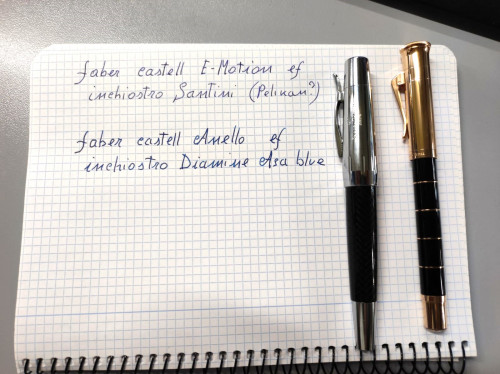 faber castell E-Motion ef
inchiostro Santini (Pelikan?)
faber castell Anello ef
inchiostro Diamine Asa blue